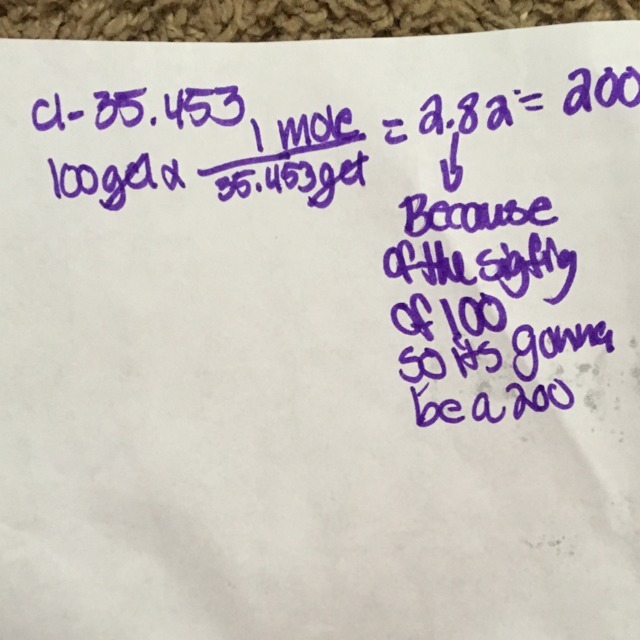 Cl- 35.453
100gCl x 1 mole / 35.453gCl = 2.82 = 200
Because
of the sigfig
of 100
so its gonna
be a 200